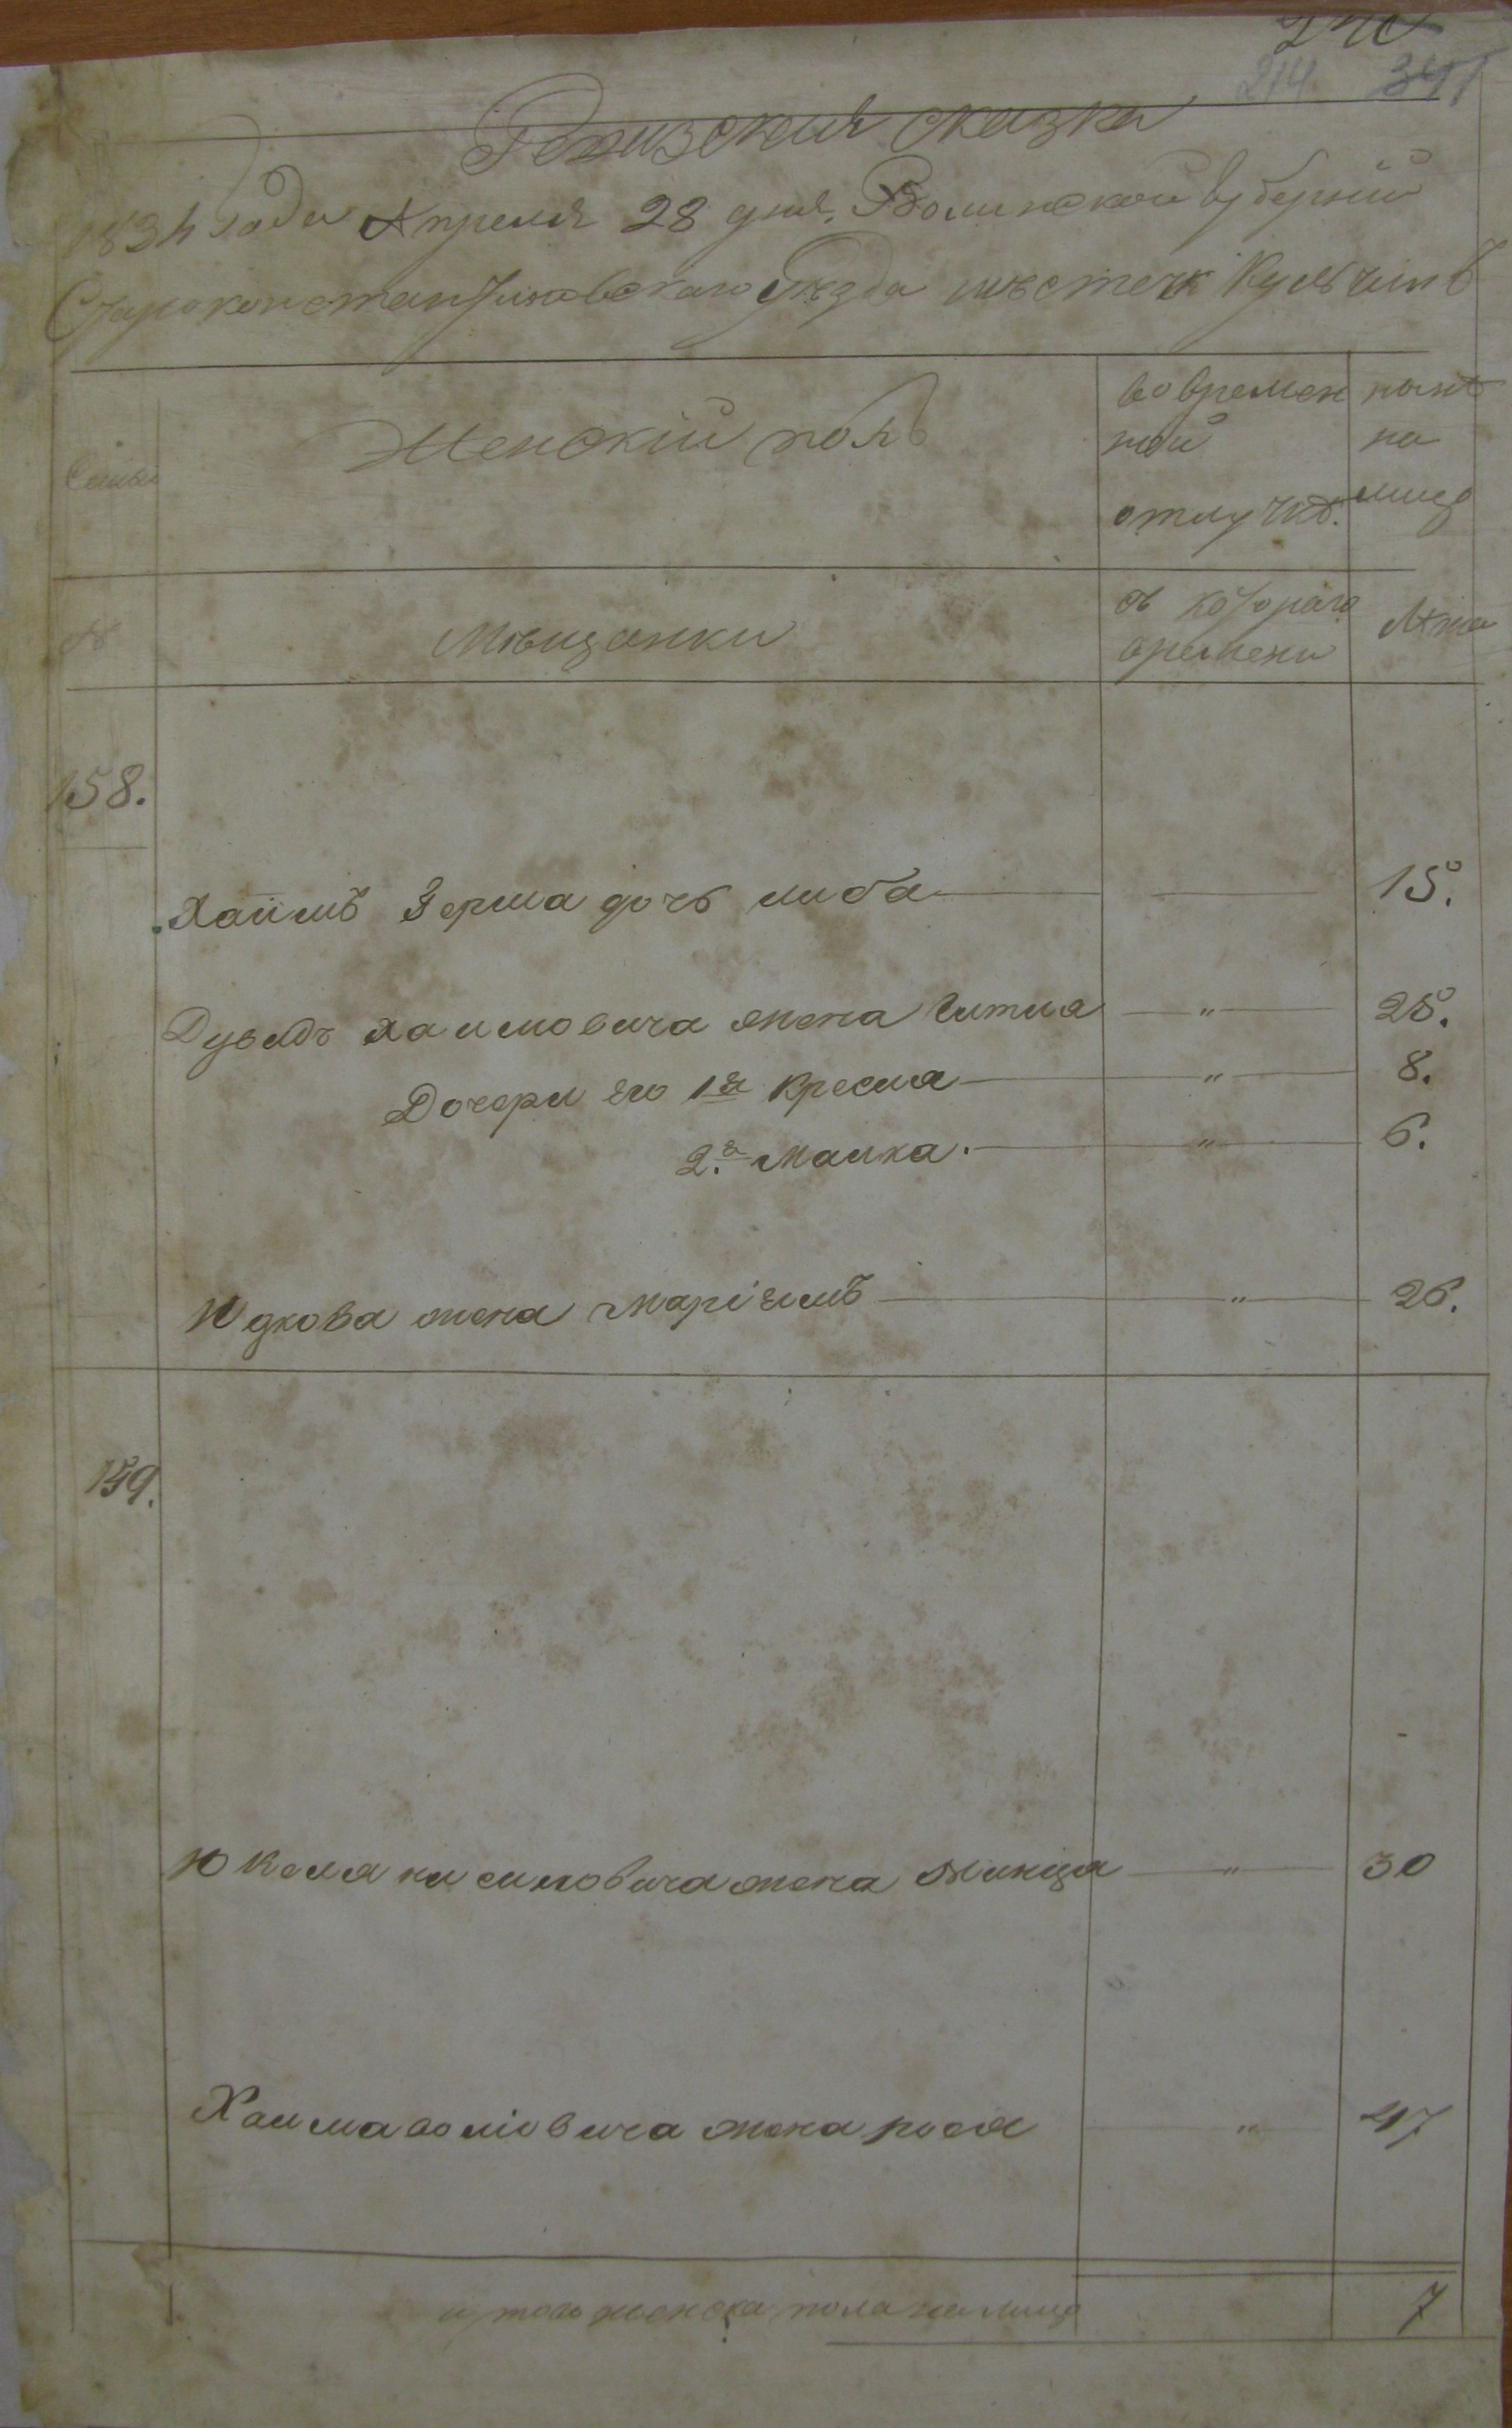 214. 341
Ревизския сказка
1834 года Апреля 28 дня. Волинской губерніи
Староконстантиновскаго уезда местечк Кульчинъ
Семьи
Женскій полъ
во времен
ной
отлучкѣ.
нынѣ
на
лицо
№
Мѣщанки
съ котораго
времени
Лѣта
158.
Хаимъ Герша дочь либа 15.
Дувидъ Хаимовича жена Гитля " 25.
Дочери его 1я Кресля " 8.
2.я Малка. " 6.
Юдкова жена Маріемъ " 26.
159.
Юкеля нисиновича жена Жинця " 30
Хаима воліовича жена рося " 47
итого женска пола на лицо 7